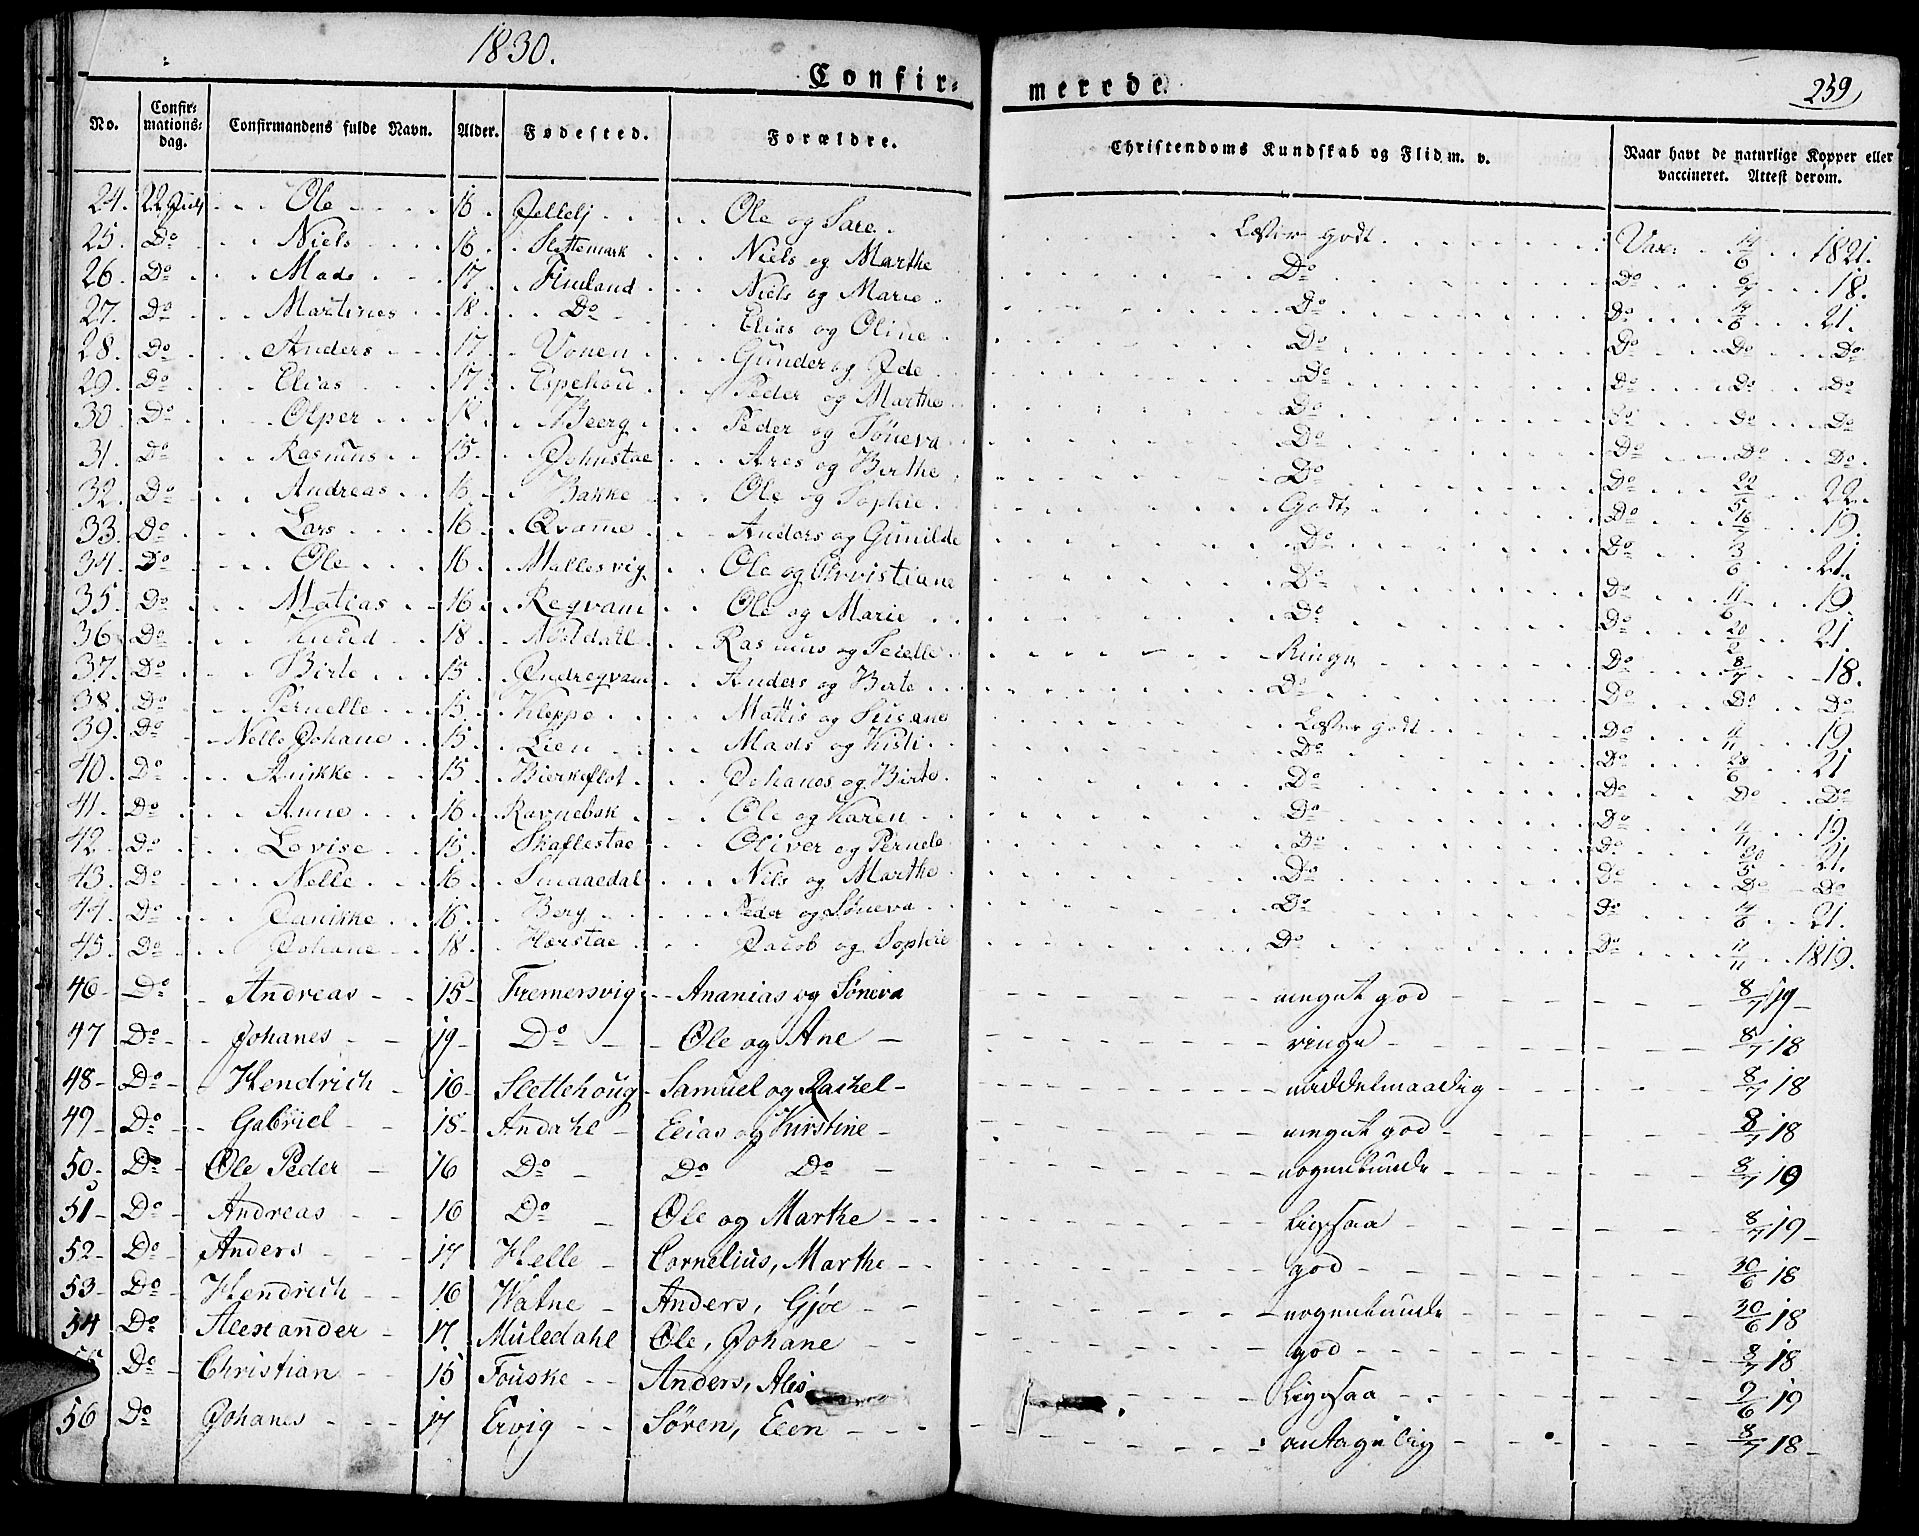 1830.
Confirmerede.
259
No. Confirmationsdag. Confirmandens fulde Navn. Alder. Fødested. Forældre. Christendoms Kundskab og Flid m. v. Naar havt de naturlige Kopper eller vaccineret. Attest derom.
24. 22 July Ole 16 Ole og Sare Læser godt Vax: 14/6 1821.
25. Do Niels 16 Slettemark Niels og Marthe Do Do 6/7 18.
26. Do Mads 17 Fimland Niels og Marie Do Do 14/6 21.
27. Do Martines 18 Do Elias og Oline Do Do Do Do
28. Do Anders 17 Vonen Gunder og Do Do Do Do
29. Do Elias 17 Espehou Peder og Marthe Do Do Do Do
30 Do Olper Beerg Peder og Søneva Do Do Do Do
31. Do Rasmus 15 Johnstae Ares og Birthe Do Do 22.
32. Do Andreas 16 Bakke Ole og Sophie Godt Do 19.
33. Do Lars 16 Qvame Anders og Gunilde Do Do 3/6 21.
34. Do Ole 16 Mallesvig Ole og Christiane Do Do 11/6 19.
35. Do Matias 16 Reqvam Ole og Marie Do Do 21.
36 Do Knud 18 Nøstdahl Rasmus og Ringe Do 8/7 18.
37. Do Birte 15 Endreqvam Anders og Birte Do Do Do Do
38. Do Pernelle 15 Kleppe Mattis og Susane Læser godt Do 4/11 19
39. Do Nelle Johane 15 Lien Mads og Kisti Do Do 28/6 21
40. Do Anikke 15 Bierkeflot Johanes og Birte Do Do Do Do
41. Do Anne 16 Ravnebak Ole og Karen Do Do 4/11 19.
42 Do Lovise 15 Skaflestae Oliver og Pernele Do Do 21.
43. Do Nelle 16 Smaaedal Nils og Marthe Do Do Do Do
44. Do Janikke 16 Berg Peder og Søneva Do Do 14/6 21.
45. Do Johane 18 Hærstae Jacob og Sophie Do Do 11/11 1819.
46 Do Andreas 15 Fremersvig Ananias og Søneva meget god 8/7 19
47 Do Johanes 19 Do Ole og Ane ringe 8/7 18
48 Do Hendrich 16 Slettehoug Samuel og Rachel middelmaadig 8/7 18
49 Do Gabriel 18 Andahl Elias og Kirstine meget god 8/7 18
50 Do Ole Peder 16 Do Do Do nogenlunde 8/7 19
51 Do Andreas 16 Do Ole og Marthe ligesaa 8/7 19
52 Do Anders 17 Helle Cornelius, Marthe god 30/6 18
53 Do Hendrich 16 Watne Anders, Gjøe nogenlunde 30/6 18
54 Do Alexander 17. Muledahl Ole, Johane god 8/7 18
55 Do Christian 15 Fouske Anders, Ales ligesaa 9/6 19
56 Do Johanes 17 Ervig Søren, Elen antagelig 8/7 18